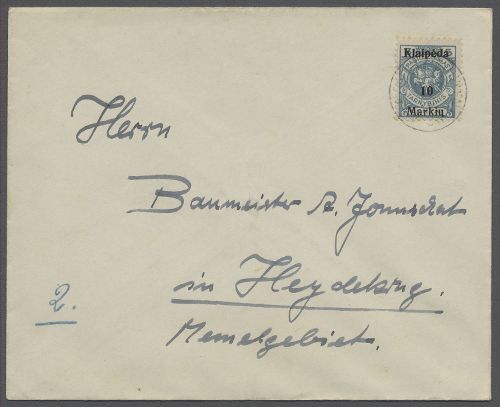 Klaipėda
10
Markių
Herrn
Baumeister A. Jonuschat
in Heydekrug.
2.
Memelgebiet.